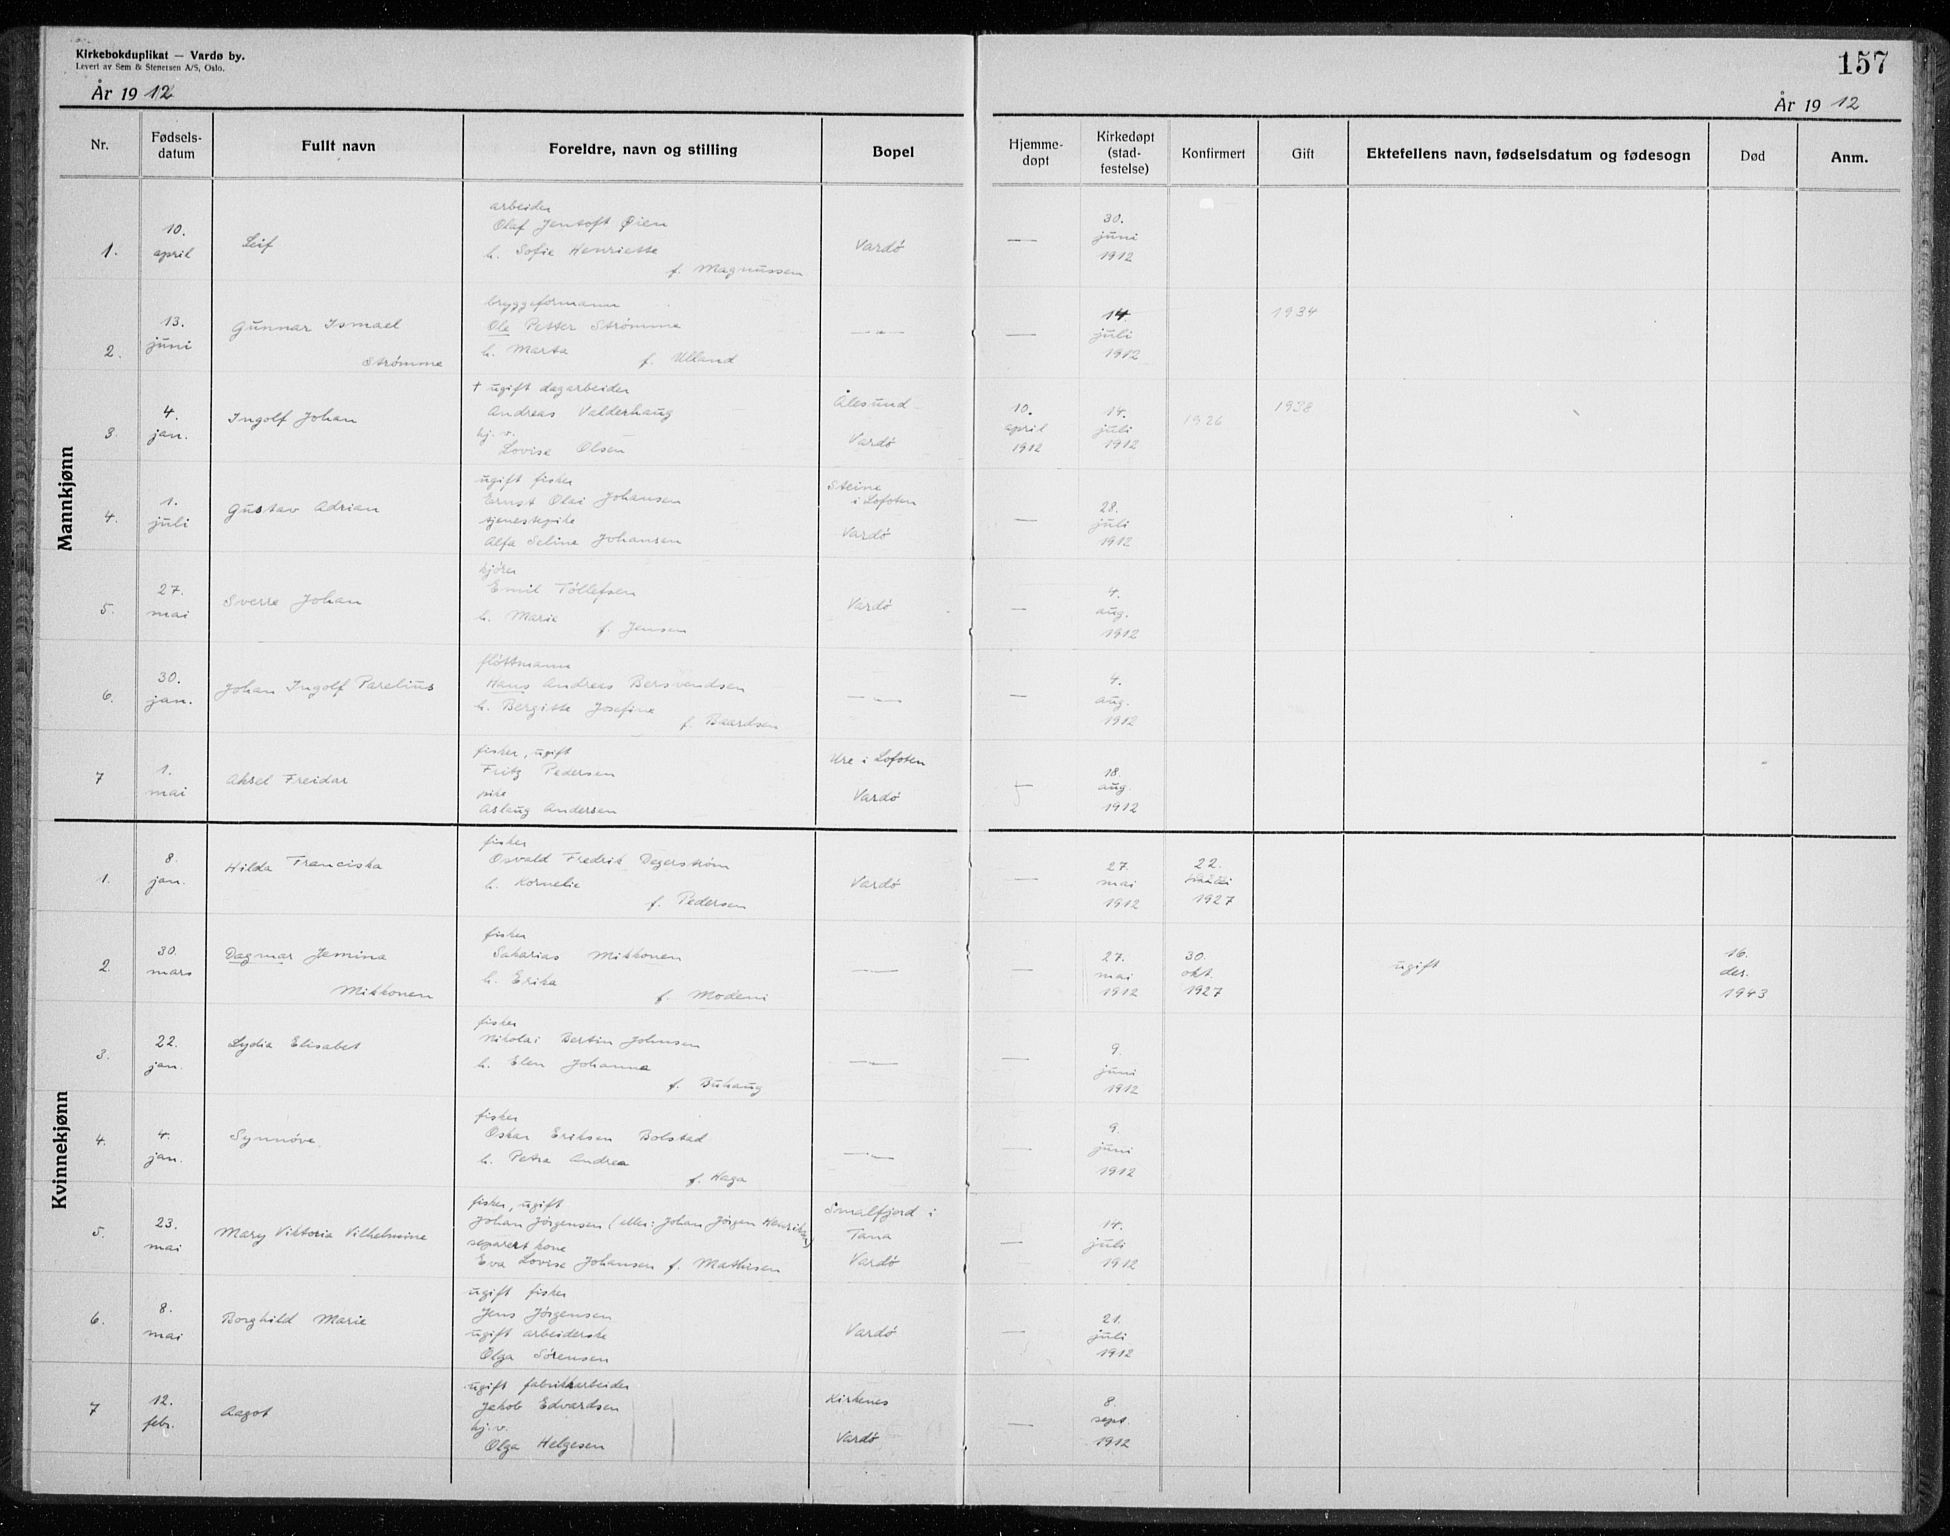 Kirkebokduplikat — Vardø by.
Levert av Sem & Stenersen A/S, Oslo.
157
År 1912
År 1912
Nr. Fødsels-datum Fullt navn Foreldre, navn og stilling Bopel Hjemme-døpt Kirkedøpt (stad-festelse) Konfirmert Gift Ektefellens navn, fødselsdatum og fødesogn Død Anm.
Mannkjønn
arbeider
10. Olaf Jentoft Øien 30.
1. april Leif h. Sofie Henriette Vardø — juni
f. Magnussen 1912
bryggeformann
13. Gunnar Ismael Ole Petter Strømme —"— — 14. 1934
2. juni Strømme h. Marta f. Ulland juli
1912
† ugift dagarbeider Ålesund
4. Ingolf Johan Andreas Valderhaug 10. 14. 1938
3. jan. hj. v. Vardø april juli 1926
Lovise Olsen 1912 1912
ugift fisker Steine
1. Gustav Adrian Ernst Olai Johansen i Lofoten 28.
4. juli tjenestepike — juli
Alfa Seline Johansen Vardø 1912
kjører
27. Emil Tøllefsen 4.
5. mai Sverre Johan h. Marie Vardø — aug.
f. Jensen 1912
fløttmann
30. Johan Ingolf Parelius Hans Andreas Bersvendsen 4.
6. jan. h. Bergitte Josefine —"— — aug.
f. Baardsen 1912
fisker, ugift Ure i Lofoten
1. Aksel Freidar Fritz Pedersen 18.
7 mai pike Vardø — aug.
Aslaug Andersen 1912
Kvinnekjønn
fisker
8. Hilda Franciska Osvald Fredrik Degerstrøm 27. 22.
1. jan. h. Kornelie Vardø — mai
f. Pedersen 1912 1927
fisker
30. Dagmar Jemina Sakarias Mikkonen 27. 30. ugift 16.
2. mars h. Erika —"— — mai okt. des.
Mikkonen f. Modeni 1912 1927 1943
fisker
22. Lydia Elisabet Nikolai Bertin Johnsen 9.
3. jan. h. Elen Johanna —"— — juni
f. Buhaug 1912
fisker
4. Synnøve Oskar Eriksen Bolstad 9.
4. jan. h. Petra Andrea —"— — juni
f. Haga 1912
fisker, ugift Smalfjord i
23. Johan Jørgensen (eller: Johan Jørgen Henriksen) Tana 14.
5. mai Mary Viktoria Vilhelmine separert kone — juli
Eva Lovise Johansen f. Mathisen Vardø 1912
ugift fisker
8. Borghild Marie Jens Jørgensen 21.
6. mai ugift arbeiderske Vardø — juli
Olga Sørensen 1912
ugift fabrikkarbeider
12. Aagot Jakob Edvardsen Kirkenes 8.
7 febr. hj. v. — sept.
Olga Helgesen Vardø 1912